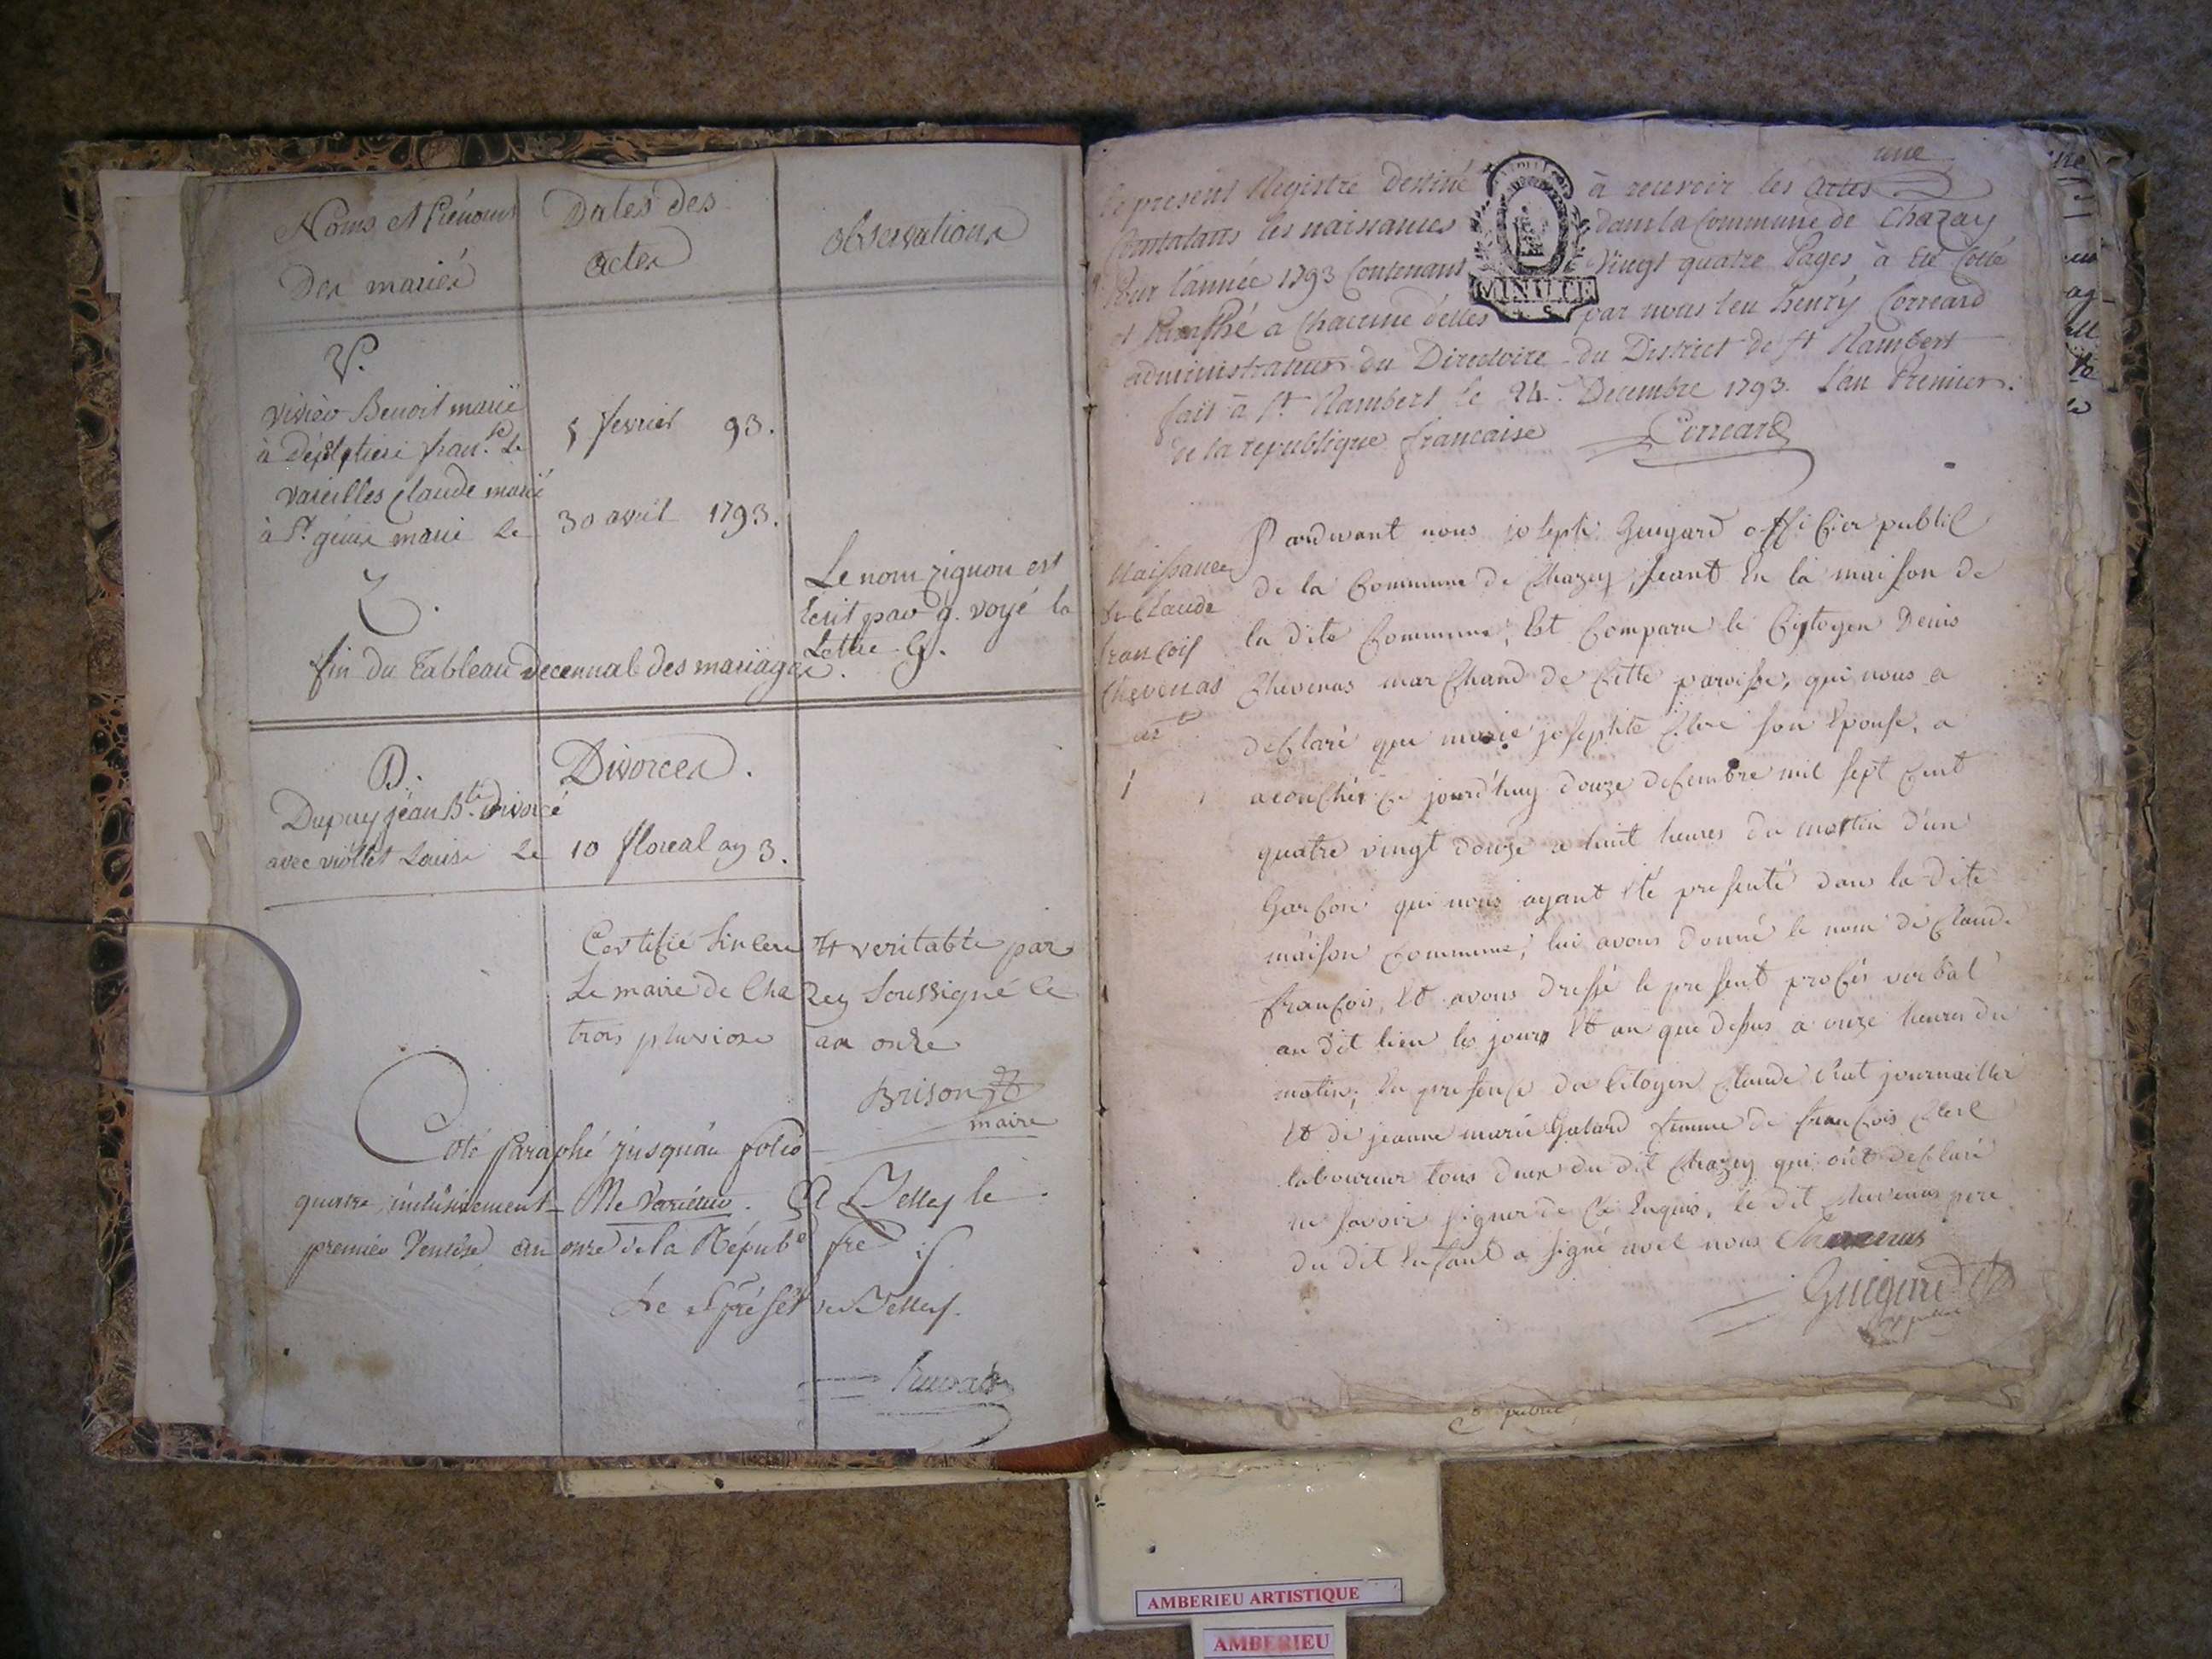 Noms et Prénoms
Des mariés
Dates des
actes
observations
V.
vivier Benoit marié
à fran.se Le
5 fevrier 93.
vareilles Claude marié
à St. genix marie Le
30 avril 1793.
Z.
Le nom zignon est
écrit par g. voyé la
Lettre G.
fin du Tableau decennal des mariages.
D.
Divorces.
Dupuy jean Bte. divorcé
avec viollet Louise Le
10 floreal an 3.
Certifié sincere et veritable par
Le maire de Chazey Soussigné le
trois pluviose an onze
Brison
maire
Coté Paraphé jusqu'au folio
quatre inclusivement Belley le
premier Ventôse an onze de la Répub.e fre
Le S. préfet de Belley.
une
le present Registre destiné à recevoir les actes
Constatans les naissances dans la Commune de Chazay
Pour l'année 1793 Contenant Vingt quatre Pages, à été Cotté
et Paraphé a Chacune d'elles par nous henry Correard
administrateur du Directoire du District de St Rambert
fait à St. Rambert le 24 Decembre 1793. L'an Premier.
de la republique francaise Correard
MINUTE
Naissance
de Claude
francois
Chevenas
1
Pardevant nous joseph Guigard officier public
de la Commune de Chazey, seant en la maison de
la dite Commune, Est Comparu le Citoyen Denis
Chevenas marchand de Cette paroisse, qui nous a
declaré que marie josephte Clere son Epouse, a
acouchée ce jourd'huy douze decembre mil sept cent
quatre vingt douze a huit heures du mattin d'un
Garcon qui nous ayant été presenté dans la dite
maison Commune, lui avons donné le nom de Claude
francois, Et avons dressé le present procés verbal
au dit lieu les jours Et an que dessus a onze heures du
matin, En presence du Citoyen Claude Rat journailler
Et de jeanne marie Galard femme de francois Clere
laboureur tous deux du dit Chazey qui ont declaré
ne savoir signer de Ce Enquis, le dit Chevenas pere
du dit Enfant a signé avec nous Chevenas
Guigard
public
AMBERIEU ARTISTIQUE
AMBERIEU